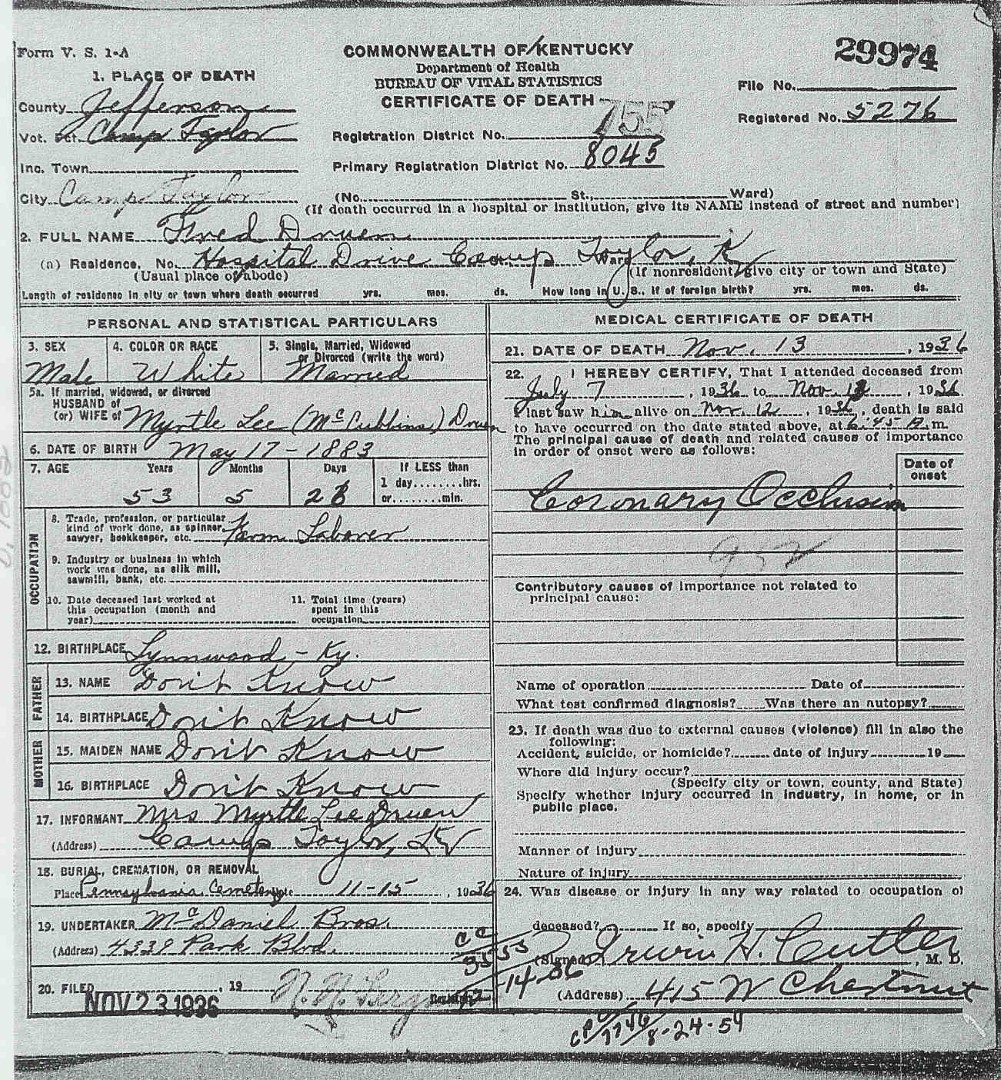 Form V. S. 1-A
COMMONWEALTH OF KENTUCKY
Department of Health
BUREAU OF VITAL STATISTICS
CERTIFICATE OF DEATH
29974
File No.
Registered No. 5276
1. PLACE OF DEATH
County Jefferson
Vot. Pct. Camp Taylor
Inc. Town
City Camp Taylor
Registration District No. 755
Primary Registration District No. 8045
(No. St., Ward)
(If death occurred in a hospital or institution, give its NAME instead of street and number)
2. FULL NAME Fred Druen
(a) Residence, No. Hospital Drive Camp Taylor, Ky
(Usual place of abode) (If nonresident, give city or town and State)
Length of residence in city or town where death occurred yrs. mos. ds. How long in U. S., if of foreign birth? yrs. mos. ds.
PERSONAL AND STATISTICAL PARTICULARS
3. SEX Male
4. COLOR OR RACE White
5. Single, Married, Widowed or Divorced (write the word) Married
5a. If married, widowed, or divorced
HUSBAND of
(or) WIFE of Myrtle Lee (McCubbins) Druen
6. DATE OF BIRTH May 17 - 1883
7. AGE Years Months Days If LESS than
1 day........hrs.
or........min.
53 5
8. Trade, profession, or particular
kind of work done, as spinner,
sawyer, bookkeeper, etc. Farm Laborer
9. Industry or business in which
work was done, as silk mill,
sawmill, bank, etc.
10. Date deceased last worked at
this occupation (month and
year)
11. Total time (years)
spent in this
occupation
OCCUPATION
12. BIRTHPLACE Lynnwood - Ky.
FATHER
13. NAME Don't Know
14. BIRTHPLACE Don't Know
MOTHER
15. MAIDEN NAME Don't Know
16. BIRTHPLACE Don't Know
17. INFORMANT Mrs Myrtle Lee Druen
(Address) Camp Taylor, Ky
18. BURIAL, CREMATION, OR REMOVAL
Place Pennsylvania Cemetery Date 11-15, 1936
19. UNDERTAKER McDaniel Bros.
(Address) 4339 Park Blvd.
20. FILED , 19
NOV 23 1936
MEDICAL CERTIFICATE OF DEATH
21. DATE OF DEATH Nov. 13, 1936
22. I HEREBY CERTIFY, That I attended deceased from
July 7, 1936 to Nov. 12, 1936
I last saw him alive on Nov 12, 1936, death is said
to have occurred on the date stated above, at 6:45 A. m.
The principal cause of death and related causes of importance
in order of onset were as follows:
Date of
onset
Coronary Occlusion
Contributory causes of importance not related to
principal cause:
Name of operation Date of
What test confirmed diagnosis? Was there an autopsy?
23. If death was due to external causes (violence) fill in also the
following:
Accident, suicide, or homicide? date of injury 19
Where did injury occur?
(Specify city or town, county, and State)
Specify whether injury occurred in industry, in home, or in
public place.
Manner of injury
Nature of injury
24. Was disease or injury in any way related to occupation of
deceased? If so, specify
(Signed) Irwin H. Cutler, M. D.
(Address) 415 W Chestnut
8-24-54